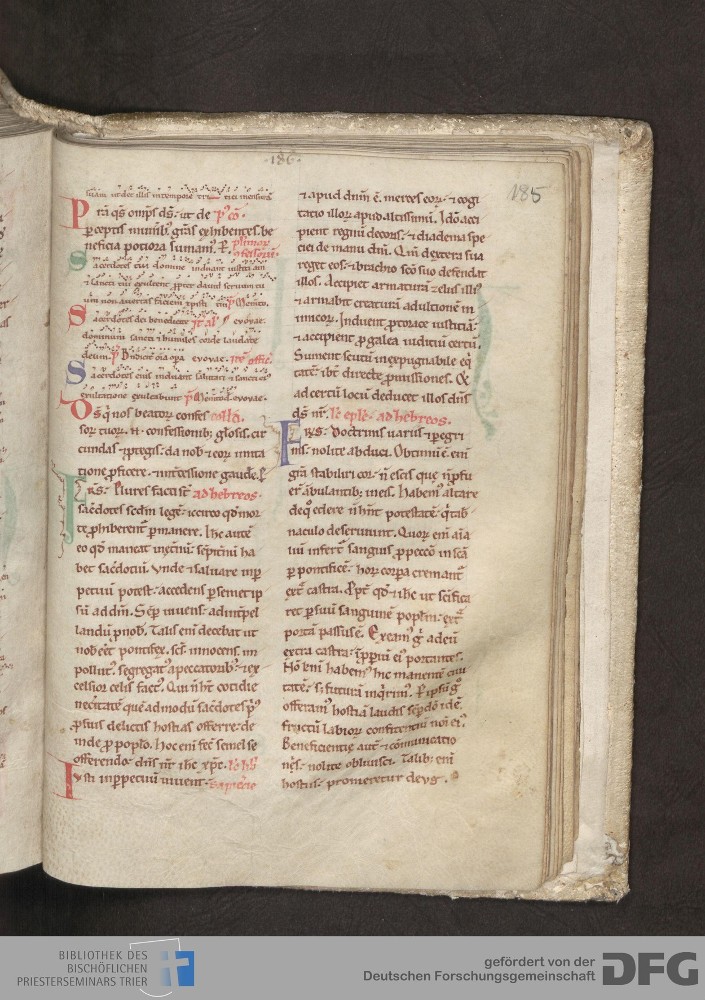 ·186·
185
suam ut det illis in tempore tritici mensurā
Prā qs omps ds· ut de pꝰ cō·
pceptis munibꝰ gr̄as exhibentes· be
neficia potiora sumamꝰ· P̄·
Sacerdotes tui domine induant iustitiam
et sancti tui exultent propter dauid seruum tu
um non auertas faciem xpisti tui
Sacerdotes dei benedicite euouae·
dominum sancti et humiles corde laudate
deum· Bndicite oīa opa euouae·
Sacerdotes eius induam salutari et sancti eius
exultatione exultabunt euouae·
Os q nos beatoꝝ confes
soꝝ tuoꝝ ·N· confessionibꝫ glosis· cir
cundas ⁊ ptegis· da nob ⁊ eoꝝ imita
tione pficere· ⁊ intcessione gaudē·
Frs· Plures facti st ad hebreos·
sacdotes scdm legē· iccirco qd mor
te phiberent pmanere. Ihc autē
eo qd maneat inetnū· sempitnū ha
bet sacdotiū· Vnde ⁊ saluare inpp
petuū potest· accedens p semetip
sū ad dm̄. Semp uiuens· ad intpel
landū pnob. Talis enī decebat ut
nob eēt pontifex· scs innocens im
pollutꝰ segregatꝰ a peccatoribꝫ· ⁊ ex
celsior celis factꝰ. Qui n̄ ht cotidie
necītatē quēadmodū sacdotes pꝰ
p suis delictis hostias offerre· de
inde p poplo. Hoc enī fec semel se
offerendo· dns nr̄ ihc xpc·
Iusti inppetuū uiuent· sapientie
⁊ apud dnm ē merces eoꝝ· ⁊ cogi
tatio illoꝝ apud altissimū. Ido acci
pient regnū decoris· ⁊ diadema spe
ciei de manu dni. Qm dextera sua
reget eos· ⁊ brachio sco suo defendet
illos. Accipiet armaturā zelus illiꝰ
⁊ armabit creaturā ad ultionē in
imicoꝝ. Induent p torace iustitiā·
⁊ accipient p galea iudiciū certū.
Sument scutū inexpugnabile eq
tatē· ibt directe pmissiones. Et
ad certū locū deducet illos dns
ds nr̄· ad hebreos·
Frs· Doctrinis uariis ⁊ pegri
nis· nolite abduci. Obtimū ē enī
gr̄a stabiliri cor· n̄ escis que n pfu
er ābulantibꝫ in eis. Habemꝰ altare
de q edere n̄ hnt potestatē· q tab
naculo deseruiunt. Quoꝝ enī aīa
liū infert sanguis p peccō in scā
p pontificē· hoꝝ corpa cremant
ext castra. Ppt qd ⁊ ihc ut scifica
ret p suū sanguinē poplm· ext
portā passus ē. Exeamꝰ g ad eū
extra castra· inpperiū eiꝰ portantes.
Nō enī habemꝰ hic manentē ciui
tatē· s; futurā inqrimꝰ. P ipsū g
offeramꝰ hostiā laudis semp dō id ē
fructū labioꝝ confitentiū noī eiꝰ.
Beneficientie aut ⁊ cōmunicatio
nis· nolite obliuisci. Talibꝫ enī
hostiis· promeretur deus·
BIBLIOTHEK DES
BISCHÖFLICHEN
PRIESTERSEMINARS TRIER
gefördert von der
Deutschen Forschungsgemeinschaft
DFG